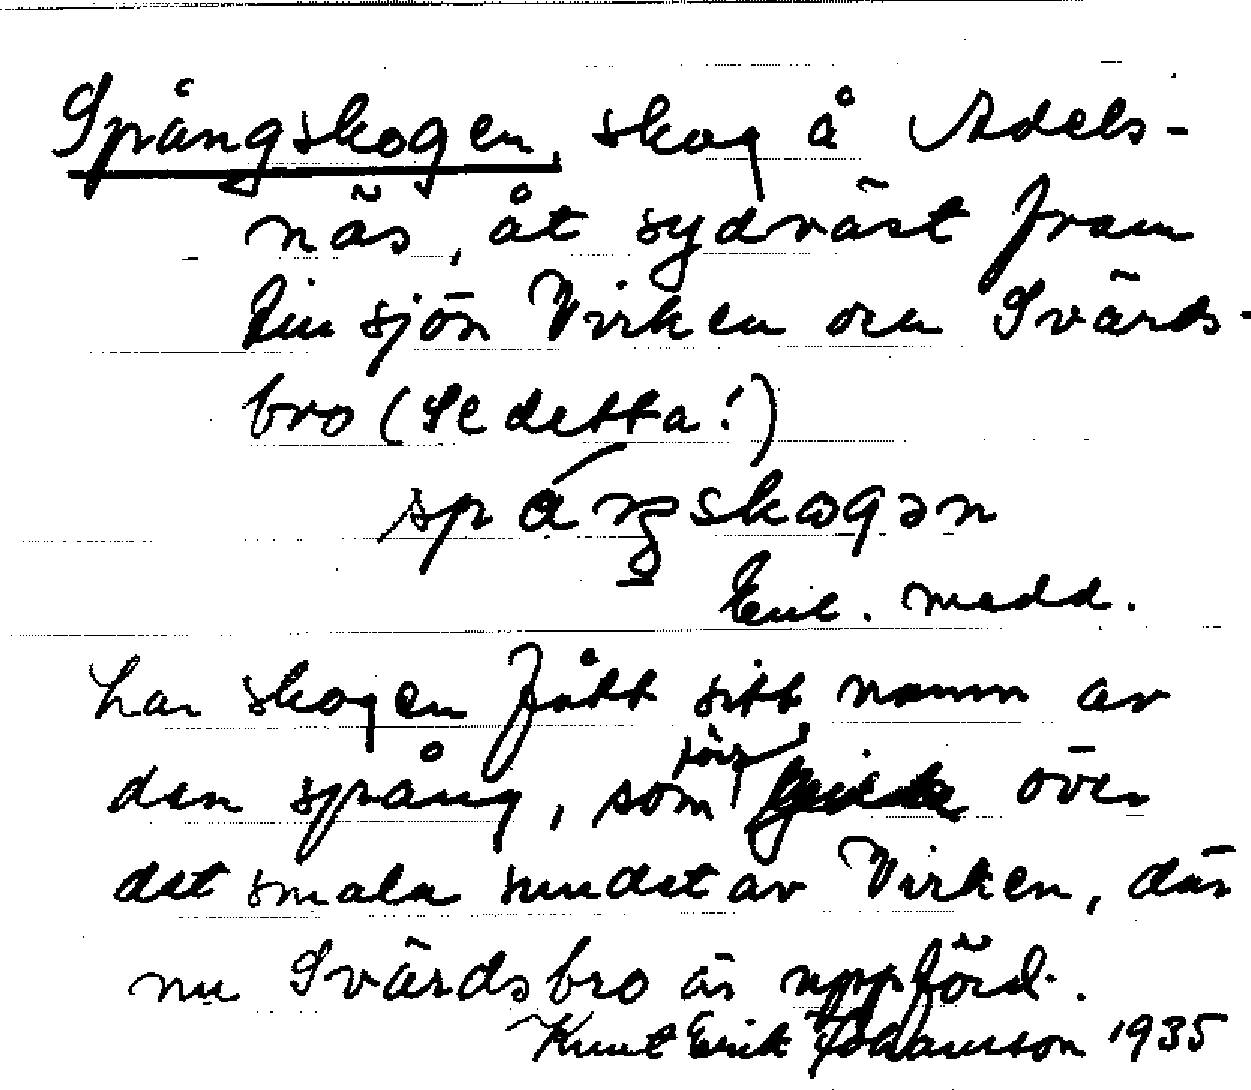 Spångskogen, skog å Adels-
näs, åt sydväst fram
till sjön Virken och Svärds-
bro (Se detta!)
spáŋskωgən
Enl. medd.
har skogen fått sitt namn av
den spång, som förr gick över
det smala sundet av Virken, där
nu Svärdsbro är uppförd.
Knut Erik Johansson 1935